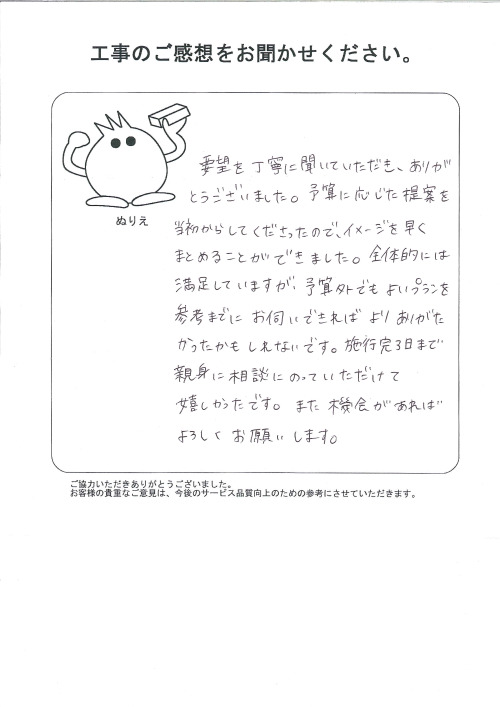 工事のご感想をお聞かせください。
ぬりえ
要望を丁寧に聞いていただき、ありが
とうございました。予算に応じた提案を
当初からしてくださったので、イメージを早く
まとめることができました。全体的には
満足していますが、予算外でもよいプランを
参考までにお伺いできればよりありがた
かったかもしれないです。施行完了日まで
親身に相談にのっていただけて
嬉しかったです。また機会があれば
よろしくお願いします。
ご協力いただきありがとうございました。
お客様の貴重なご意見は、今後のサービス品質向上のための参考にさせていただきます。